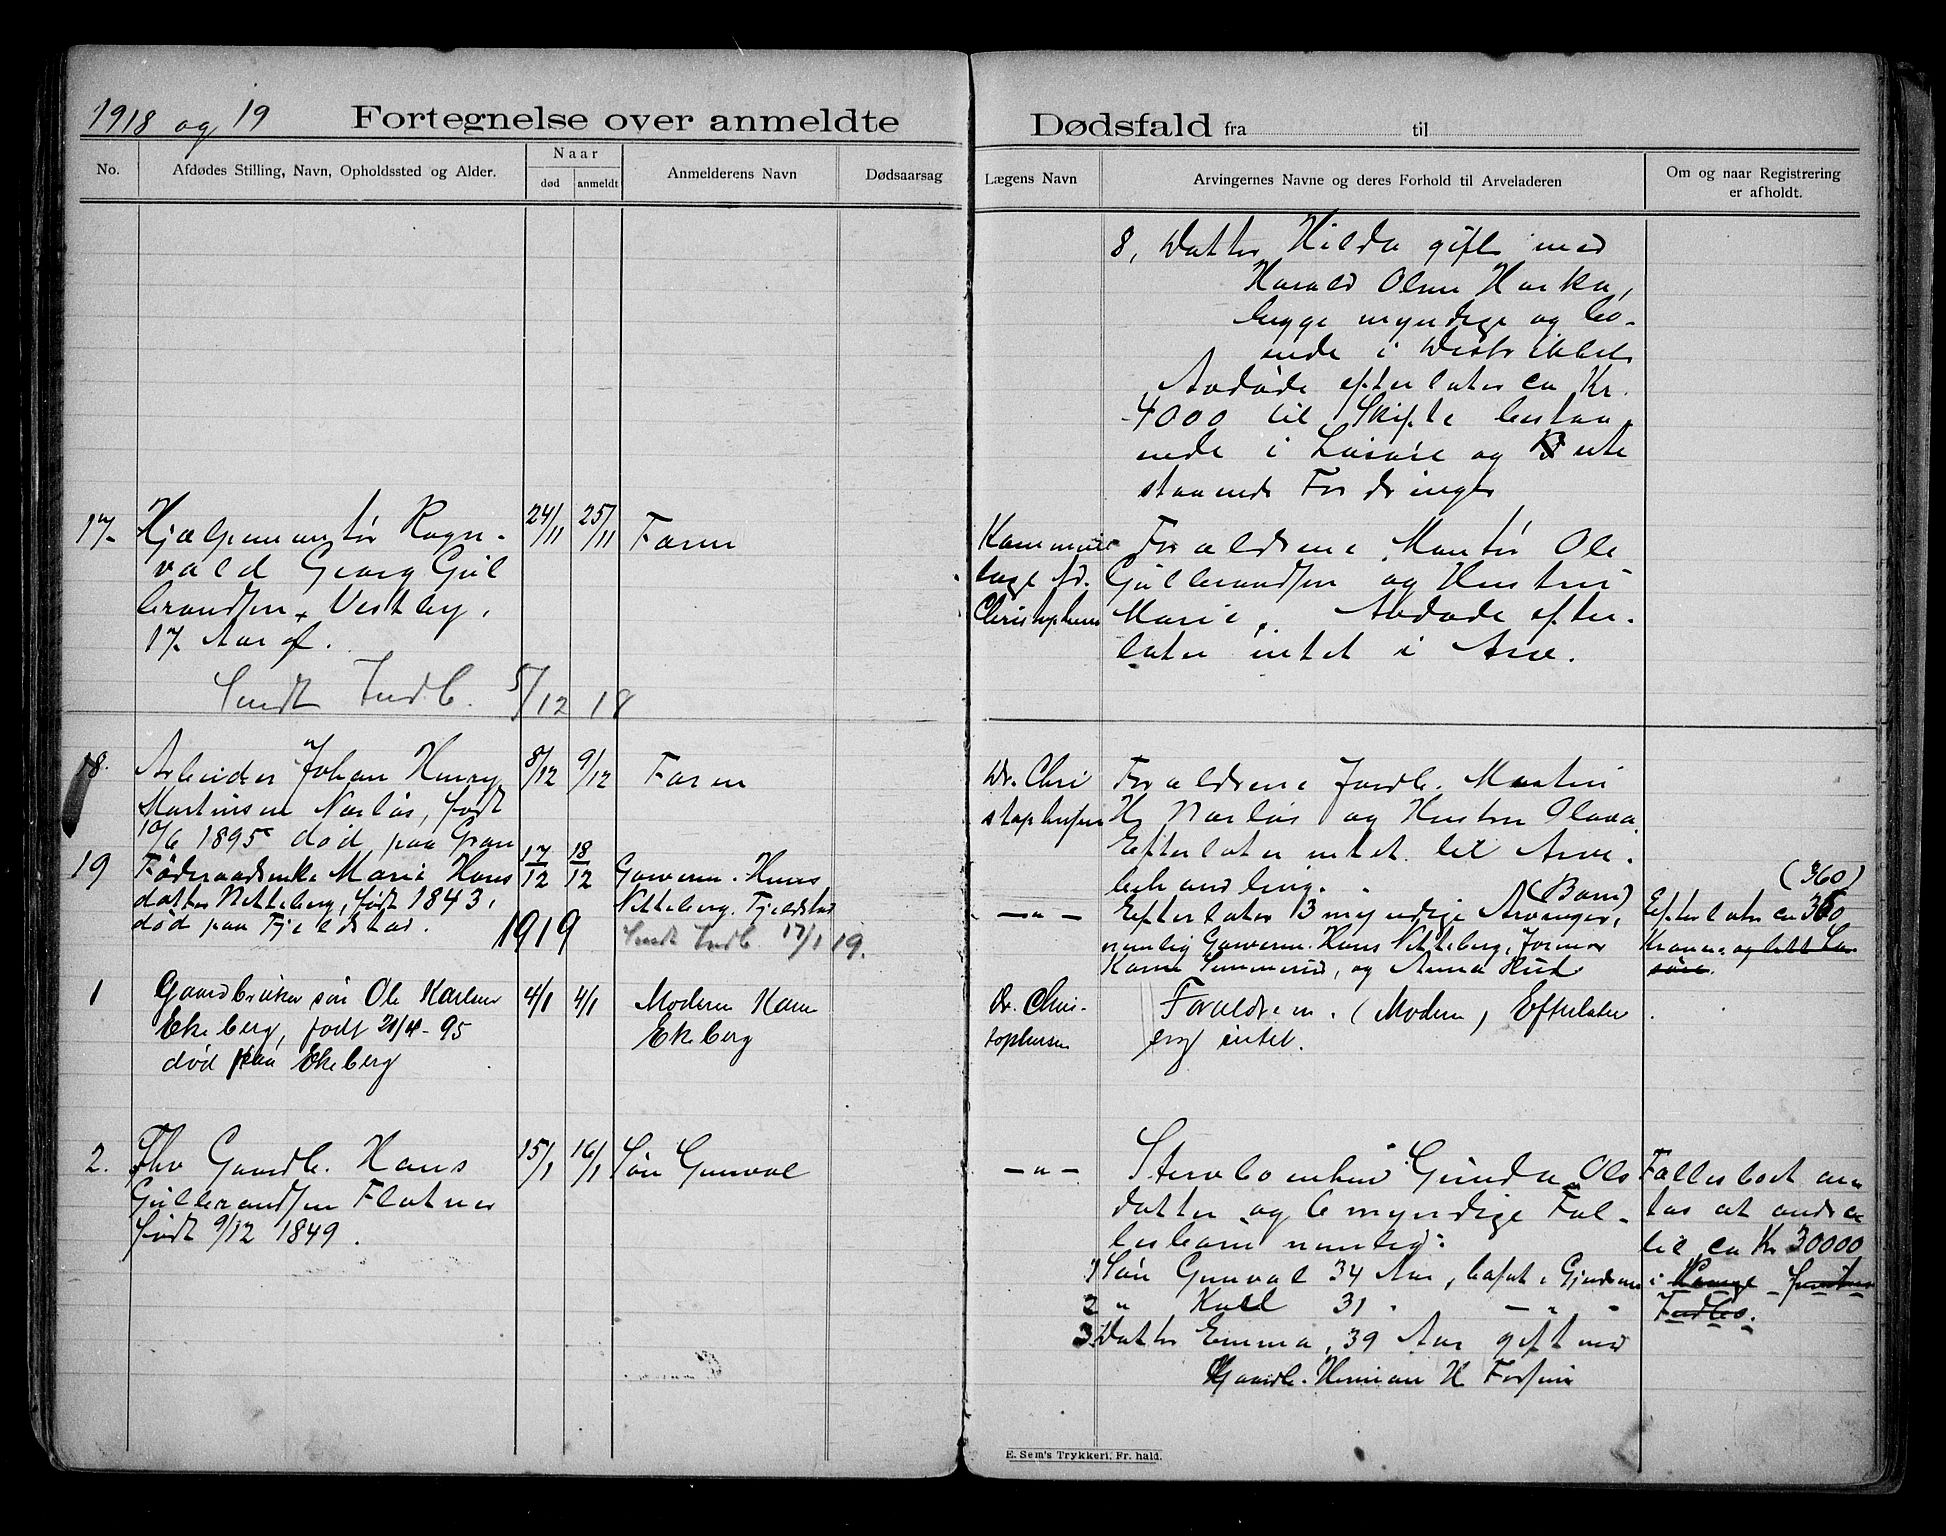 1918 og 19
Fortegnelse over anmeldte
Dødsfald fra til
No.
Afdødes Stilling, Navn, Opholdssted og Alder.
Naar
død
anmeldt
Anmelderens Navn
Dødsaarsag
Lægens Navn
Arvingernes Navne og deres Forhold til Arveladeren
Om og naar Registrering
er afholdt.
8, Datter Hilda gift med
Harald Olsen
begge myndige og bo-
ende i Distriktet
Avdøde efterlater ca Kr.
4000 til Skifte bestaa
ende i Løsøre og ute
staaende Fordringer
17
Hjælpemontør Ragn-
vald Georg Gul
brandsen, Vestby,
17 Aar gl.
24/11
25/11
Faren
Kommune
læge Ad.
Christophersen
Forældrene Montør Ole
Gulbrandsen og Hustru
Marie. Avdøde efter-
later intet i Arv.
Sendt Indb. 5/12 18
18.
Arbeider Johan Henry
Martinsen Narløs, født
10/6 1895 død paa Gran
8/12
9/12
Faren
Dr. Chri
stophersen
Forældrene Jordb. Martin
H. Narløs og Hustru Olava.
Efterlater intet til Arve-
behandling.
19
Føderaadsenke Marie Hans
datter Nitteberg, født 1843,
død paa Fjeldstad.
17/12
18/12
Gaarverm. Hans
Nitteberg. Fjeldstad
Sendt Indb. 17/1 19.
— " —
Efterlater 3 myndige Arvinger, (Barn)
nemlig Gaarverm. Hans Nitteberg, Jormor
Karen og Anna
(360)
Efterlater ca 360
Kroner og litt Lø-
søre.
1919
1
Gaardbrukersøn Ole Karlsen
Ekeberg, født 21/4-95
død paa Ekeberg
4/1
4/1
Moderen Karen
Ekeberg
Dr. Chris-
tophersen
Forældren. (Moderen) Efterlater
sig intet.
2.
Fhv Gaardb. Hans
Gulbrandsen Flatner
født 9/12 1849.
15/1
16/1
Søn Gunval
— " —
Stervboenken Gunda Ols
datter og 6 myndige Fæl-
lesbarn nemlig:
1 Søn Gunval 34 Aar, bofat i Gjerdrum
2 " Kall 31 " — " —
3. Datter Emma, 39 Aar gift med
Gaardb. Herman H
Fællesboet an
tas at andra
til ca Kr 30000
i
E. Sem's Trykkeri, Fr. hald.